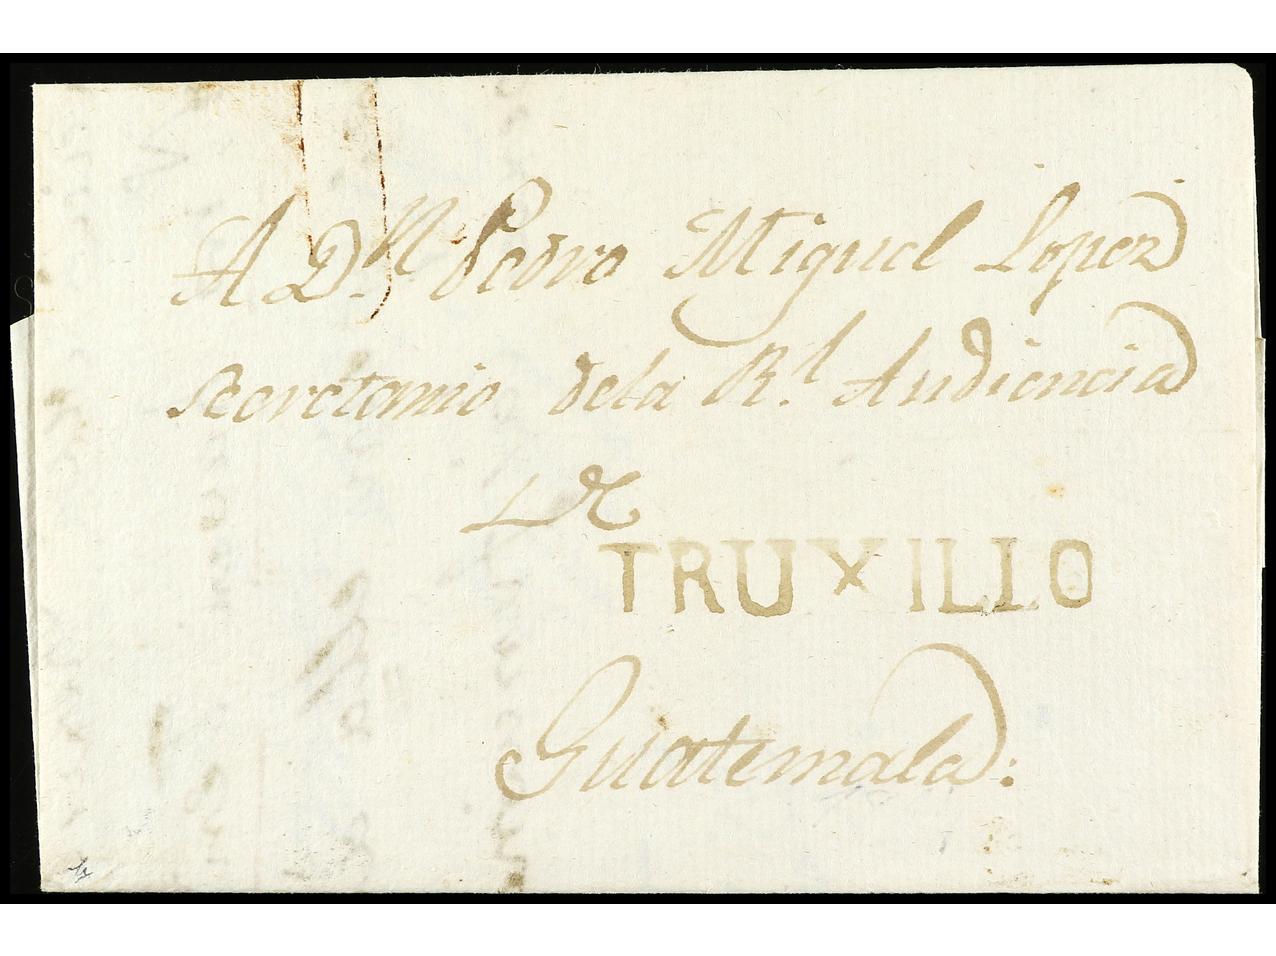 A Dn. Pedro Miguel Lopez
Secretario dela Rl. Audiencia
De
TRUXILLO
Guatemala: